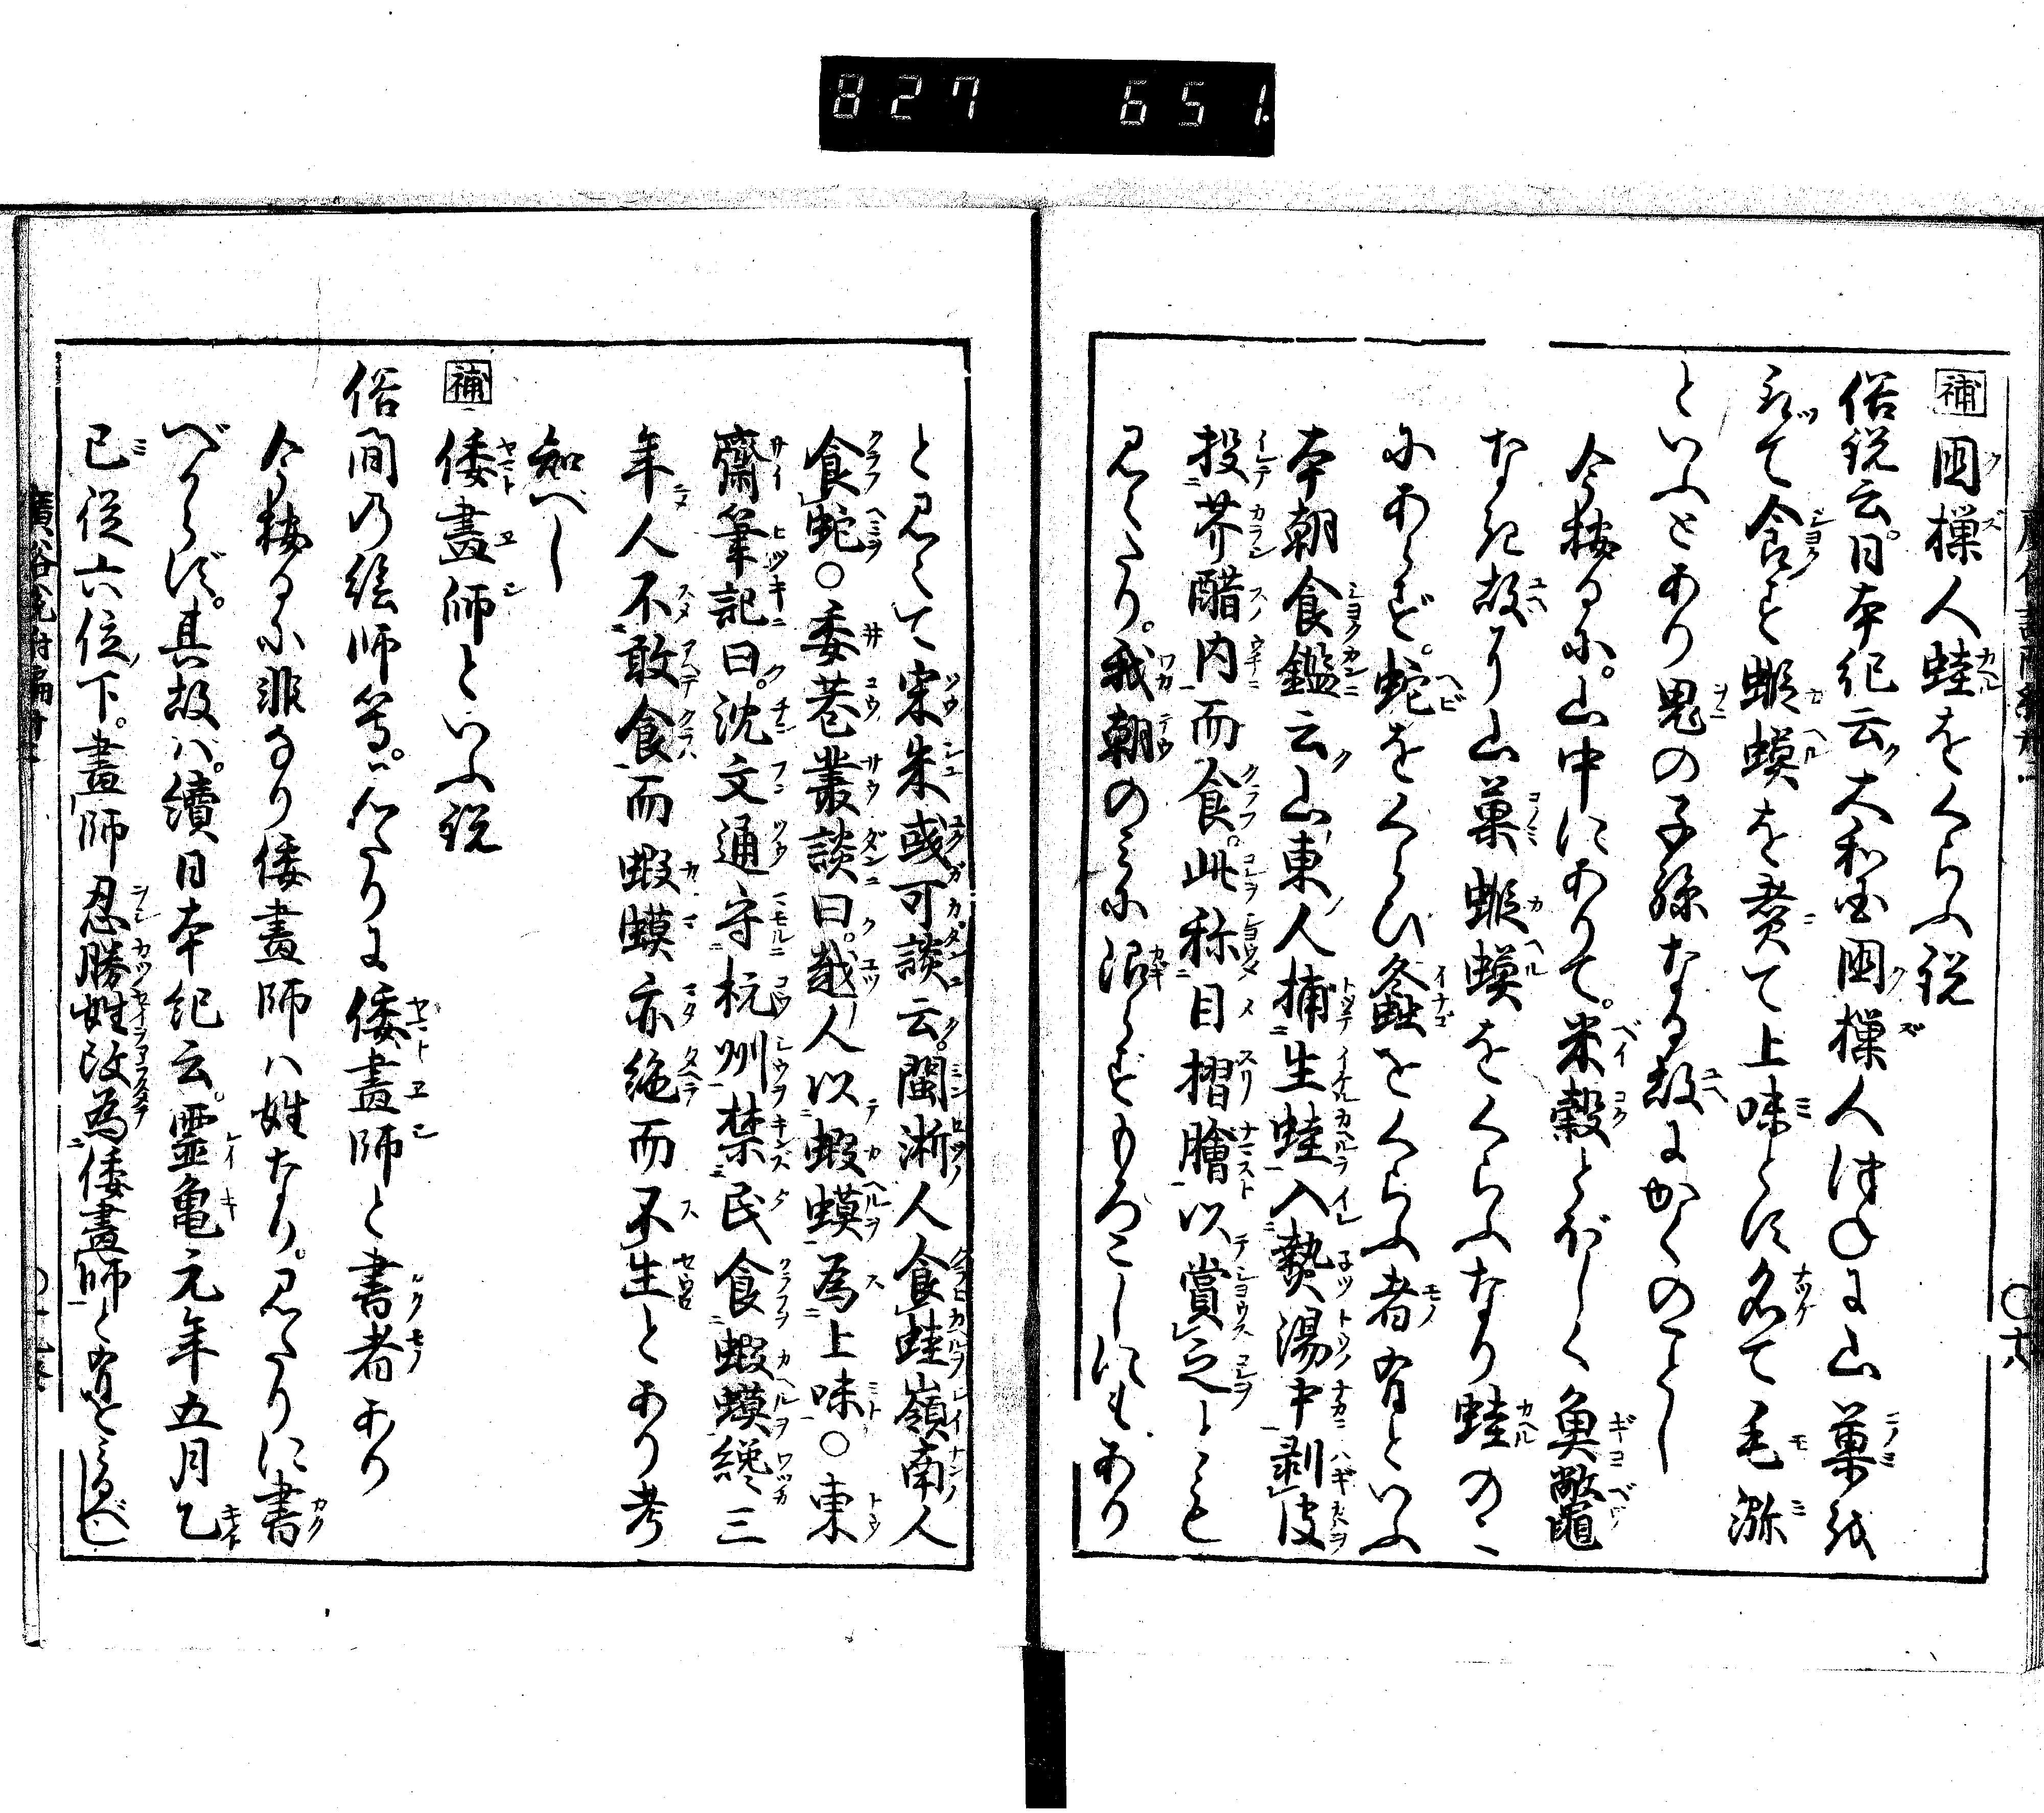 827 651.
補 国樔人蛙をくらふ説
俗説云。日本紀云大和国国樔人つねに山菓を
取て食す蝦蟆を煮て上味とす名て毛瀰
といふとあり鬼の子孫なる故にかくのごとし
今按るに。山中にありて。米穀とぼしく魚鼈
なき故より山菓蝦蟆をくらふなり蛙のミ
にあらず。蛇をくらひ螽をくらふ者有といふ
本朝食鑑云山東人捕生蛙入熱湯中剥皮
投芥醋内而食。此称目摺膾以賞之とも
見えたり。我朝のミに限らずもろこしにもあり
と見えて宋朱彧可談云。閩淅人食蛙嶺南人
食蛇○委巷叢談曰。越人以蝦蟆為上味○東
齋筆記曰。沈文通守杭州禁民食蝦蟆纔三
年人不敢食而蝦蟆亦絶而不生とあり考
知べし
補 倭畫師といふ説
俗間の絵師等。心えたりに倭畫師と書者あり
今按るに非なり倭畫師ハ姓なり。見たりに書
べからず。其故ハ。續日本紀云。霊亀元年五月乙
巳従六位下。畫師忍勝姓改為倭畫師と有をミるべし